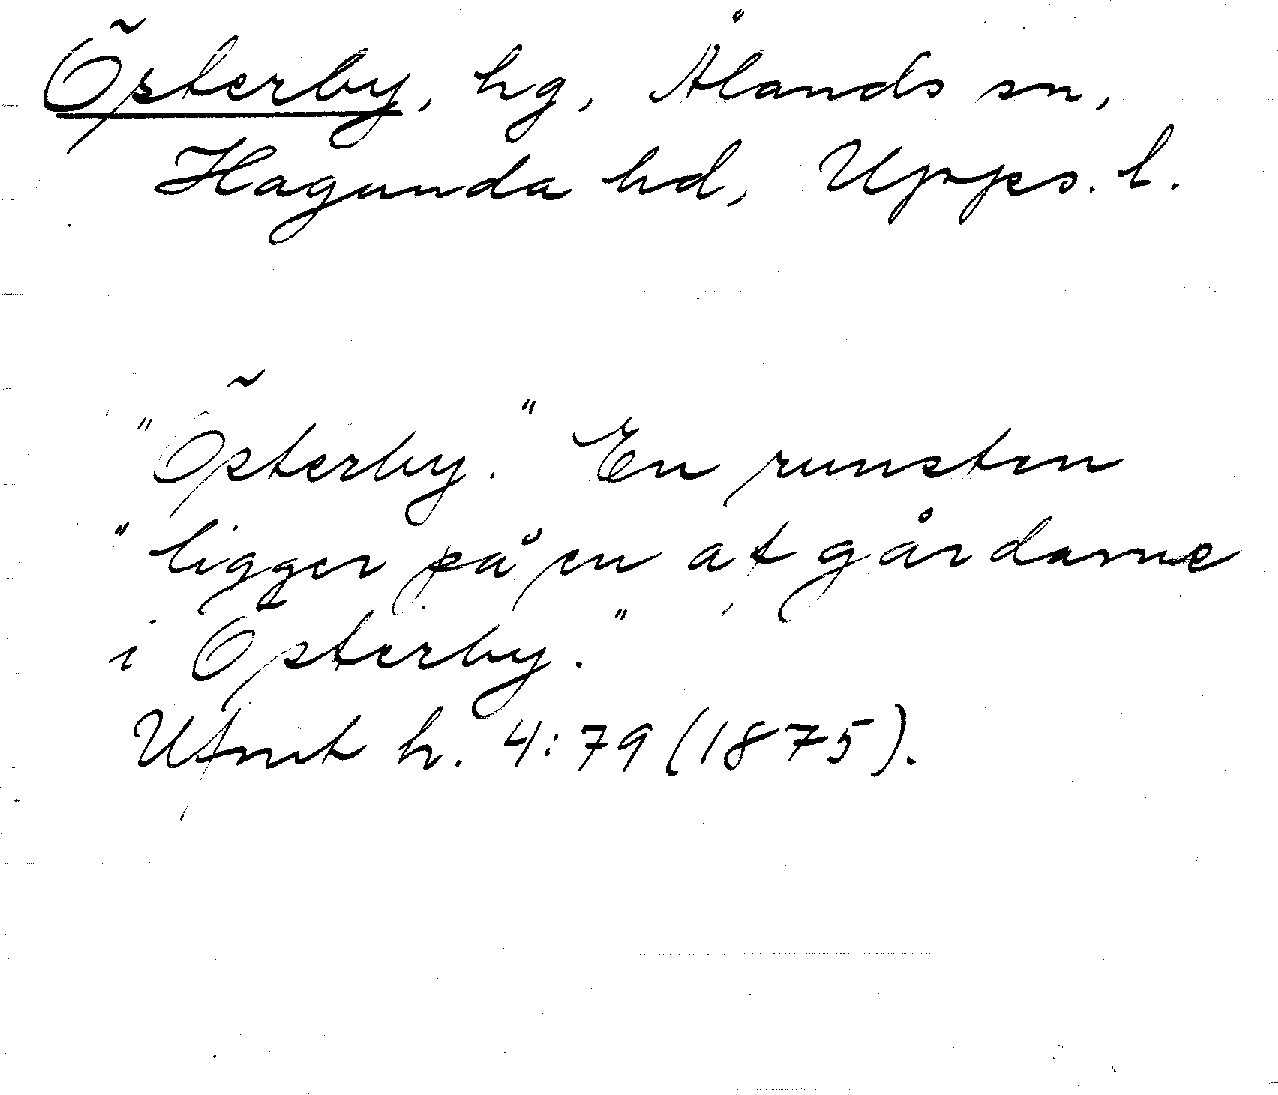 Österby, hg, Ålands sn,
Hagunda hd, Upps. l.
"Österby." En runsten
"ligger på en af gårdarne
i Österby."
Utmt h. 4:79 (1875).